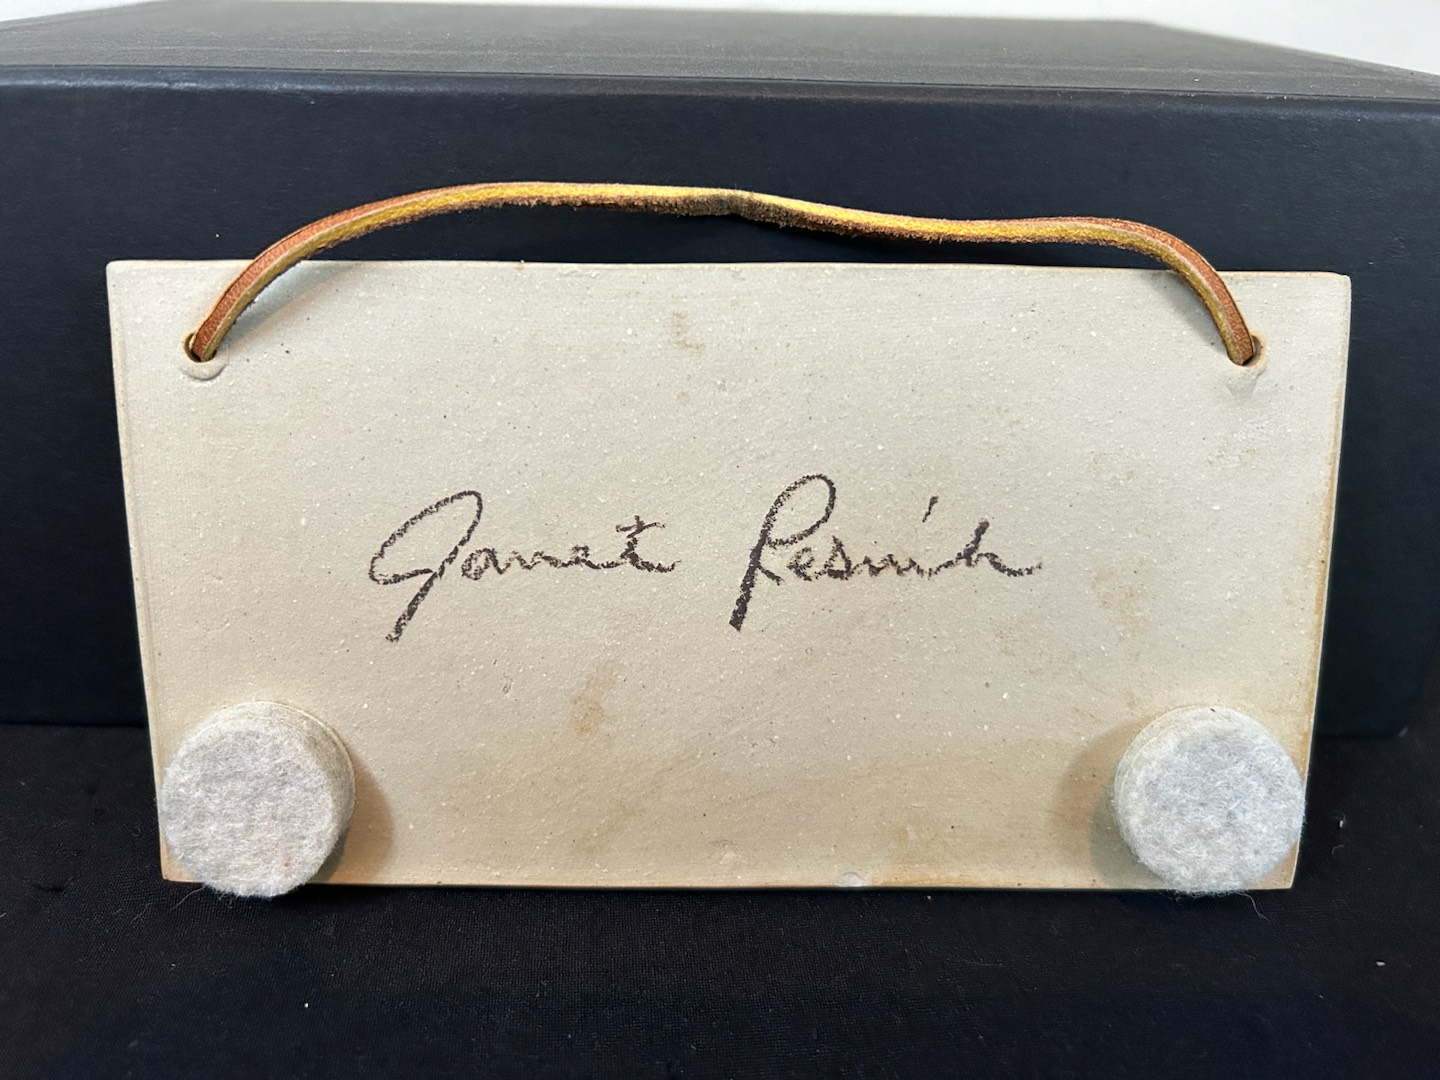 Janet Resnik